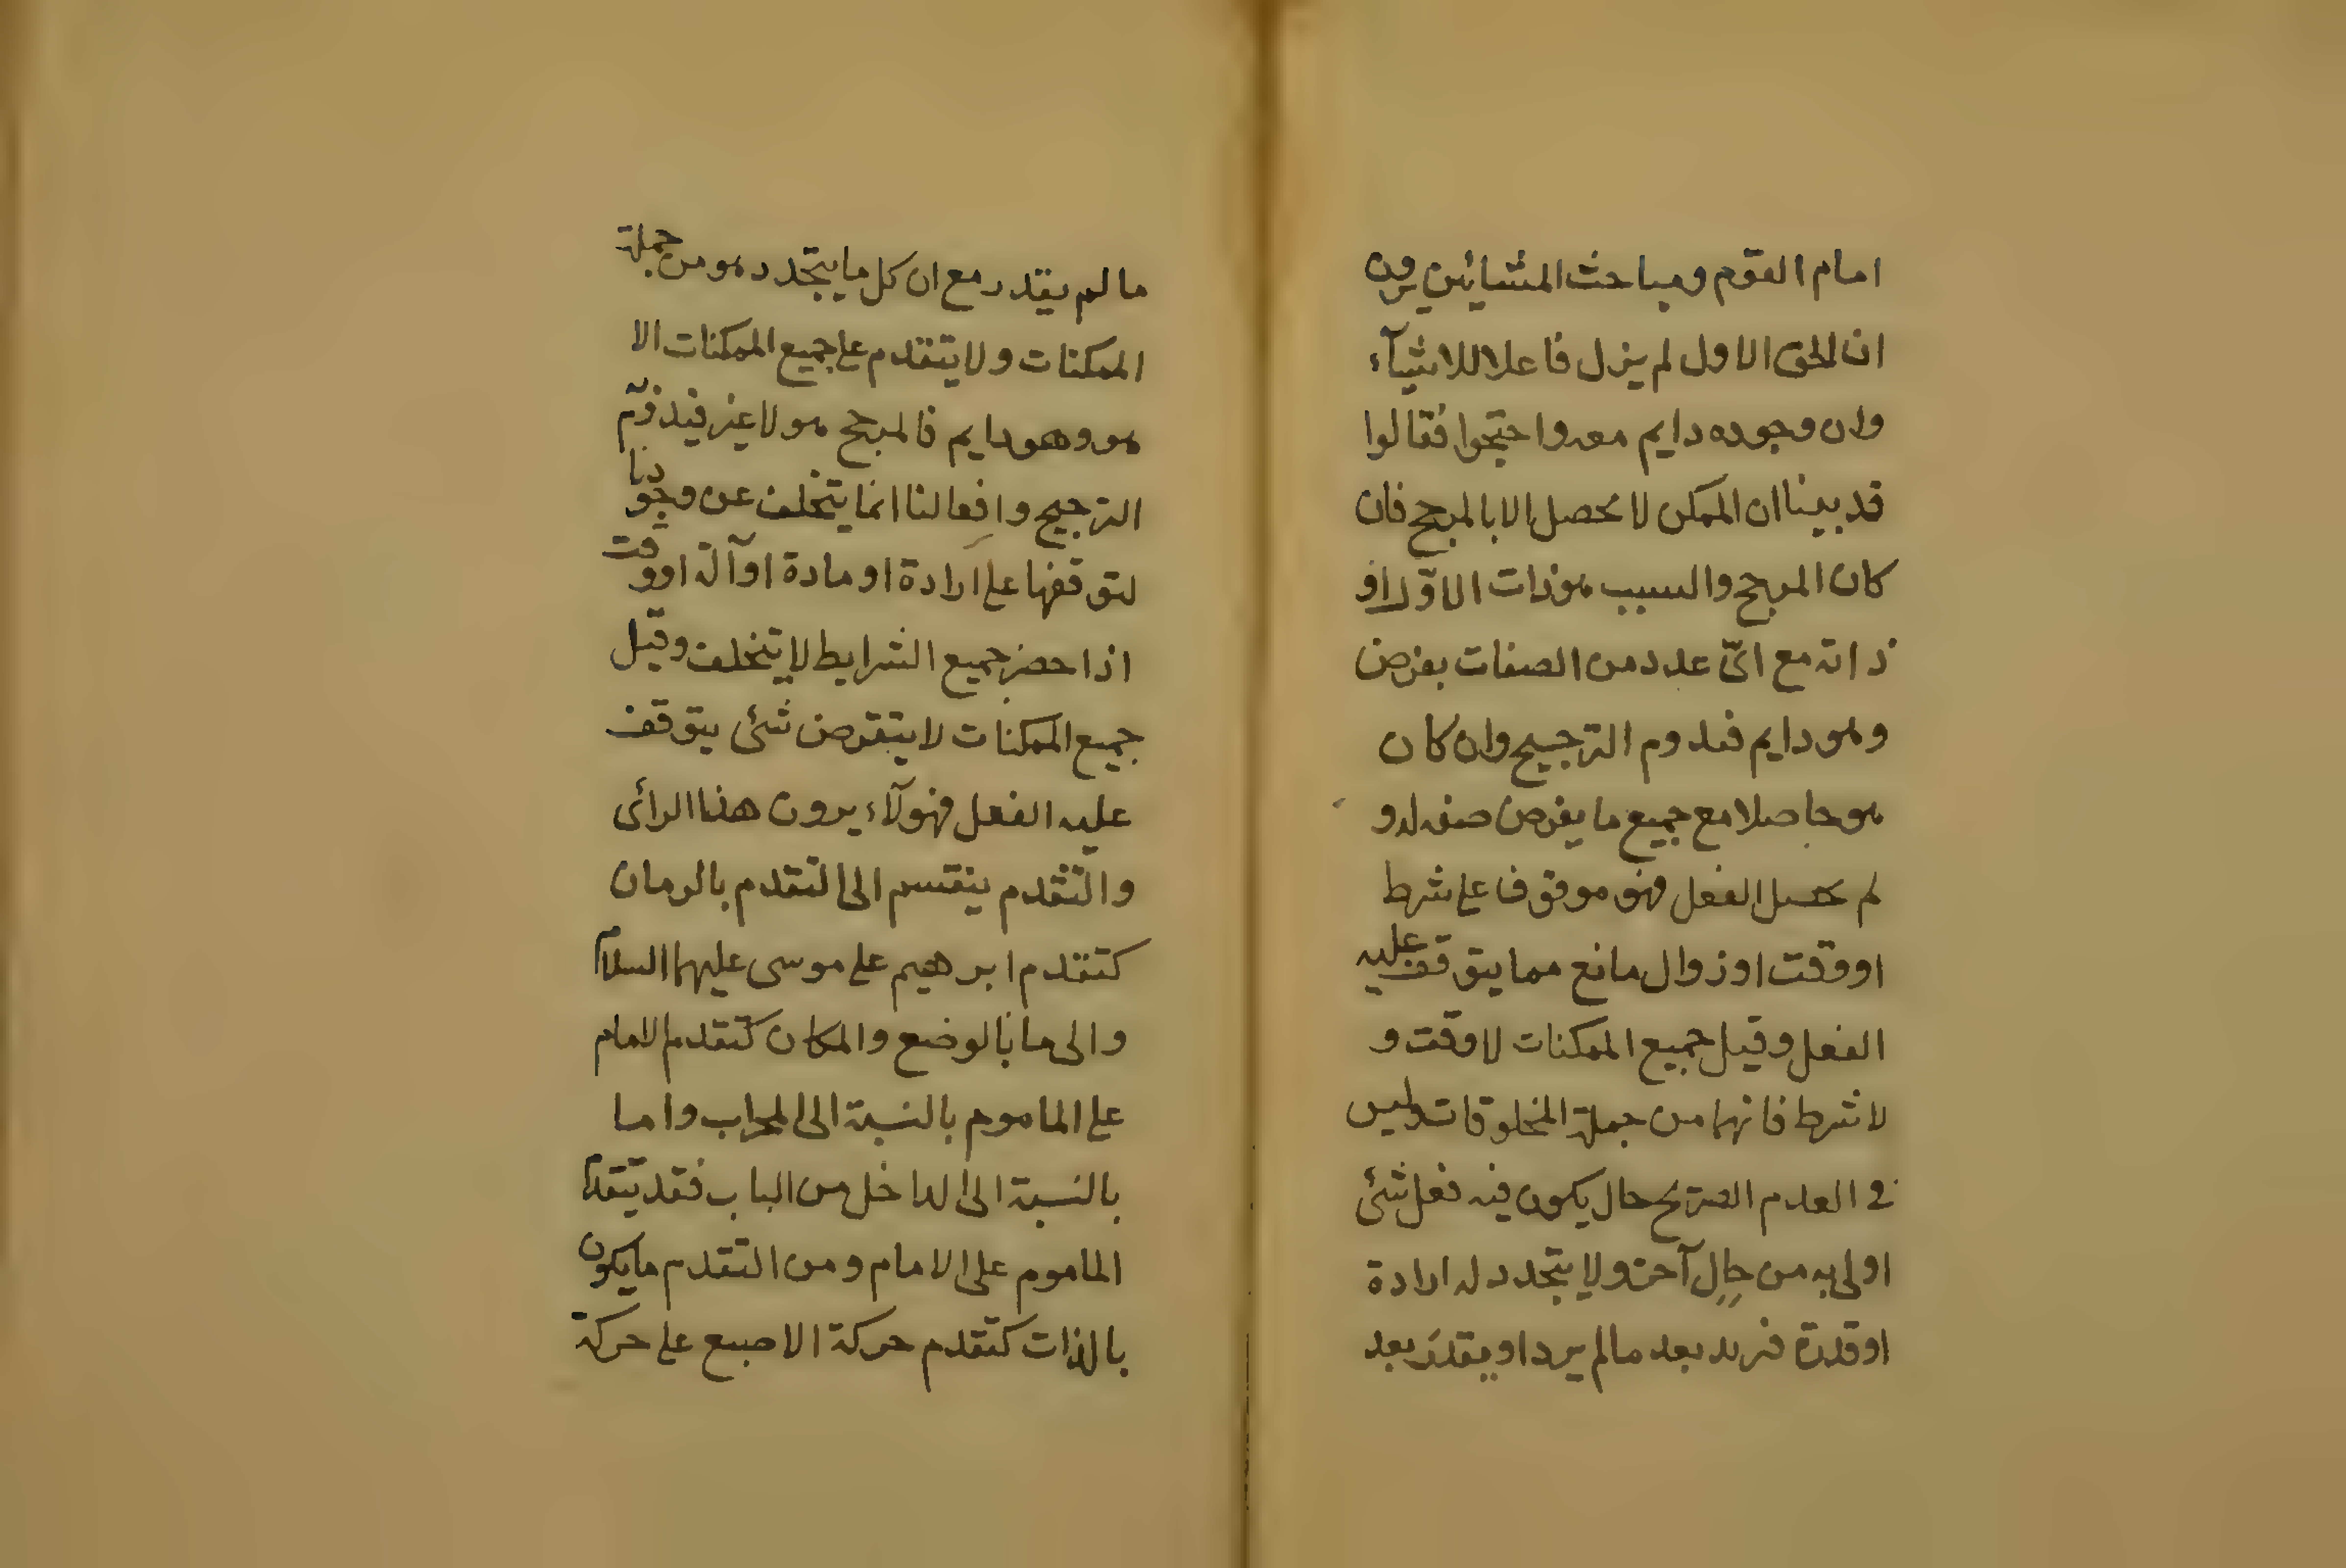 امام القوم ومباحث المشائين يرون
ان الحق الاول لم يزل فاعلا للاشيآء
وان وجوده دايم معه واحتجوا فقالوا
قد بينا ان الممكن لا يحصل الا بالمرجح فان
كان المرجح والسبب هو ذات الاوّل او
ذاته مع ايّ عدد من الصفات يفرض
وهو دايم فيدوم الترجيح وان كان
هو حاصلا مع جميع ما يفرض صفه له و
لم يحصل الفعل فهو موقوف على شرط
او وقت او زوال مانع مما يتوقف عليه
الفعل وقبل جميع الممكنات لا وقت و
لا شرط فانهما من جملة المخلوقات وليس
في العدم الصريح حال يكون فيه فعل شئ
اولى به من حال آخر ولا يتجدد له ارادة
او قدرة فيريد بعد ما لم يرد او يقدر بعد
ما لم يقدر مع ان كل ما يتجدد هو من جملة
الممكنات ولا يتقدم على جميع الممكنات الا
هو وهو دايم فالمرجح هو لا غير فيدوم
الترجيح وافعالنا انما يتخلف عن وجودنا
لتوقفها على ارادة او مادة او آلة او وقت
اذا حضر جميع الشرايط لا يتخلف وقبل
جميع الممكنات لا يتفرض شئ يتوقف
عليه الفعل فهولآء يرون هذا الرأى
والتقدم ينقسم الى التقدم بالزمان
كتقدم ابرهيم على موسى عليهما السلام
والى ما بالوضع والمكان كتقدم الامام
على الماموم بالنسبة الى المحراب واما
بالنسبة الى الداخل من الباب فقد يتقدم
الماموم على الامام ومن التقدم ما يكون
بالذات كتقدم حركة الاصبع على حركة